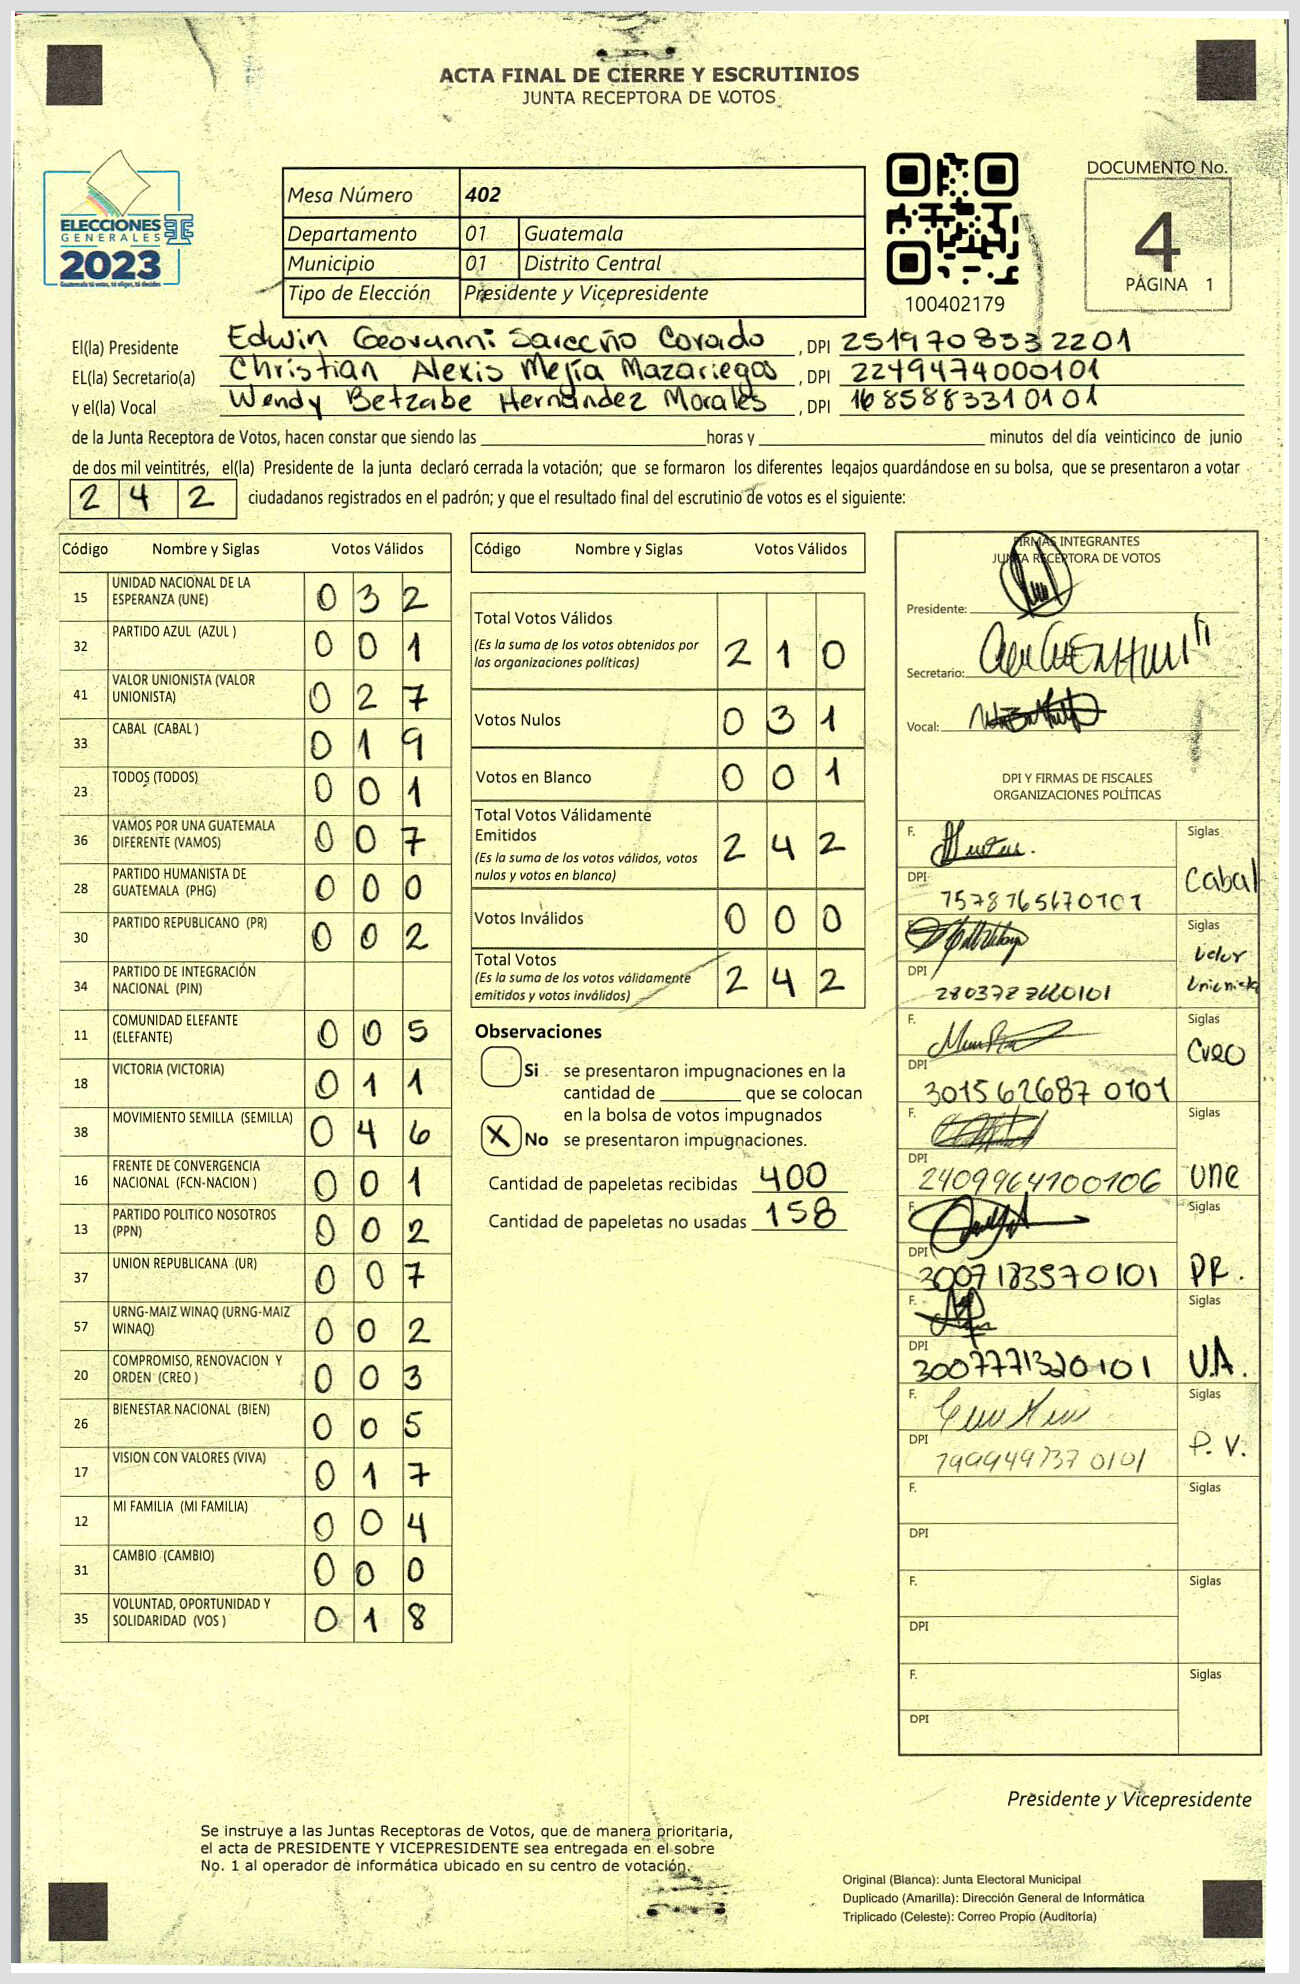 ACTA FINAL DE CIERRE Y ESCRUTINIOS
JUNTA RECEPTORA DE VOTOS
ELECCIONES
GENERALES
2023
Guatemala tú votas, tú eliges, tú decides
Mesa Número 402
Departamento 01 Guatemala
Municipio 01 Distrito Central
Tipo de Elección Presidente y Vicepresidente
100402179
DOCUMENTO No.
4
PÁGINA 1
El(la) Presidente Edwin Geovanni Sareceño Corado, DPI 2519708332201
EL(la) Secretario(a) Christian Alexis Mejía Mazariegos, DPI 2249474000101
y el(la) Vocal Wendy Betzabe Hernández Morales, DPI 1685883310101
de la Junta Receptora de Votos, hacen constar que siendo las horas y minutos del día veinticinco de junio
de dos mil veintitrés, el(la) Presidente de la junta declaró cerrada la votación; que se formaron los diferentes legajos guardándose en su bolsa, que se presentaron a votar
242 ciudadanos registrados en el padrón; y que el resultado final del escrutinio de votos es el siguiente:
Código Nombre y Siglas Votos Válidos
15 UNIDAD NACIONAL DE LA ESPERANZA (UNE) 032
32 PARTIDO AZUL (AZUL ) 001
41 VALOR UNIONISTA (VALOR UNIONISTA) 027
33 CABAL (CABAL ) 019
23 TODOS (TODOS) 001
36 VAMOS POR UNA GUATEMALA DIFERENTE (VAMOS) 007
28 PARTIDO HUMANISTA DE GUATEMALA (PHG) 000
30 PARTIDO REPUBLICANO (PR) 002
34 PARTIDO DE INTEGRACIÓN NACIONAL (PIN)
11 COMUNIDAD ELEFANTE (ELEFANTE) 005
18 VICTORIA (VICTORIA) 011
38 MOVIMIENTO SEMILLA (SEMILLA) 046
16 FRENTE DE CONVERGENCIA NACIONAL (FCN-NACION ) 001
13 PARTIDO POLITICO NOSOTROS (PPN) 002
37 UNION REPUBLICANA (UR) 007
57 URNG-MAIZ WINAQ (URNG-MAIZ WINAQ) 002
20 COMPROMISO, RENOVACION Y ORDEN (CREO ) 003
26 BIENESTAR NACIONAL (BIEN) 005
17 VISION CON VALORES (VIVA) 017
12 MI FAMILIA (MI FAMILIA) 004
31 CAMBIO (CAMBIO) 000
35 VOLUNTAD, OPORTUNIDAD Y SOLIDARIDAD (VOS ) 018
Código Nombre y Siglas Votos Válidos
Total Votos Válidos 210
(Es la suma de los votos obtenidos por
las organizaciones políticas)
Votos Nulos 031
Votos en Blanco 001
Total Votos Válidamente
Emitidos 242
(Es la suma de los votos válidos, votos
nulos y votos en blanco)
Votos Inválidos 000
Total Votos 242
(Es la suma de los votos válidamente
emitidos y votos inválidos)
Observaciones
Si se presentaron impugnaciones en la
cantidad de que se colocan
en la bolsa de votos impugnados
X No se presentaron impugnaciones.
Cantidad de papeletas recibidas 400
Cantidad de papeletas no usadas 158
FIRMAS INTEGRANTES
JUNTA RECEPTORA DE VOTOS
Presidente:
Secretario:
Vocal:
DPI Y FIRMAS DE FISCALES
ORGANIZACIONES POLÍTICAS
F. Siglas
Cabal
DPI
F. Siglas
Valor
Unionista
DPI
F. Siglas
Creo
DPI 3015626870101
F. Siglas
DPI 2409964100106 Une
F. Siglas
DPI 3007183570101 PR.
F. Siglas
DPI 3007771320101 U.A.
F. Siglas
DPI P.V.
F. Siglas
DPI
F. Siglas
DPI
F. Siglas
DPI
Presidente y Vicepresidente
Se instruye a las Juntas Receptoras de Votos, que de manera prioritaria,
el acta de PRESIDENTE Y VICEPRESIDENTE sea entregada en el sobre
No. 1 al operador de informática ubicado en su centro de votación.
Original (Blanca): Junta Electoral Municipal
Duplicado (Amarilla): Dirección General de Informática
Triplicado (Celeste): Correo Propio (Auditoría)